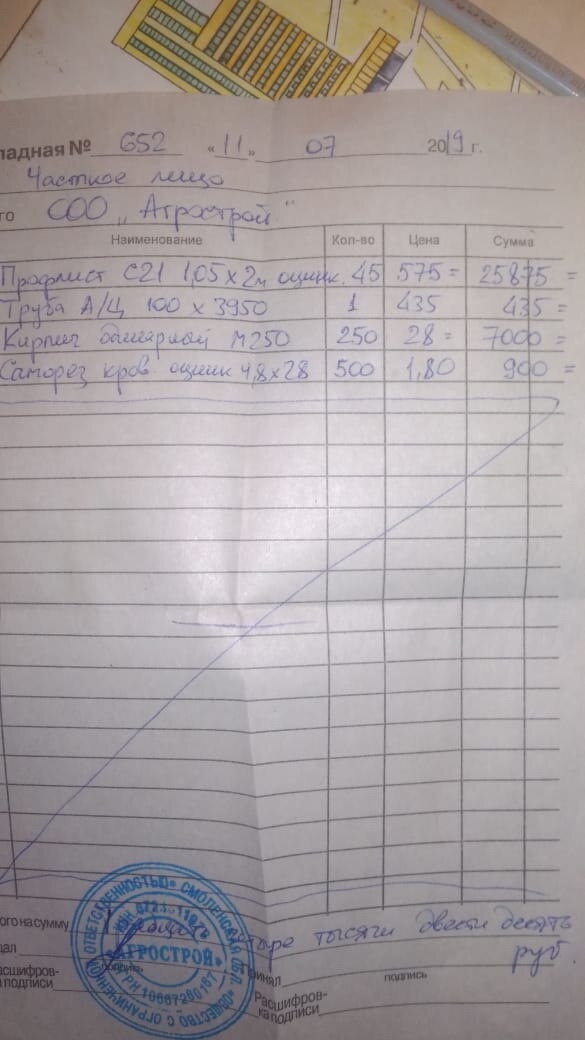 ладная № 652 «11» 07 2019 г.
Частное лицо
го ООО „Агрострой"
Наименование Кол-во Цена Сумма
Профлист С21 1,05х2м оцинк. 45 575= 25875=
Труба А/Ц 100 х 3950 1 435 435=
Кирпич баварский М250 250 28= 7000=
Саморез кров. оцинк 4,8х28 500 1,80 900=
ого на сумму Тридцать четыре тысячи двести десять
руб.
дал подпись Принял подпись
асшифров-
а подписи
Расшифров-
ка подписи
ОБЩЕСТВО С ОГРАНИЧЕННОЙ ОТВЕТСТВЕННОСТЬЮ» СМОЛЕНСКАЯ ОБЛ.
«АГРОСТРОЙ»